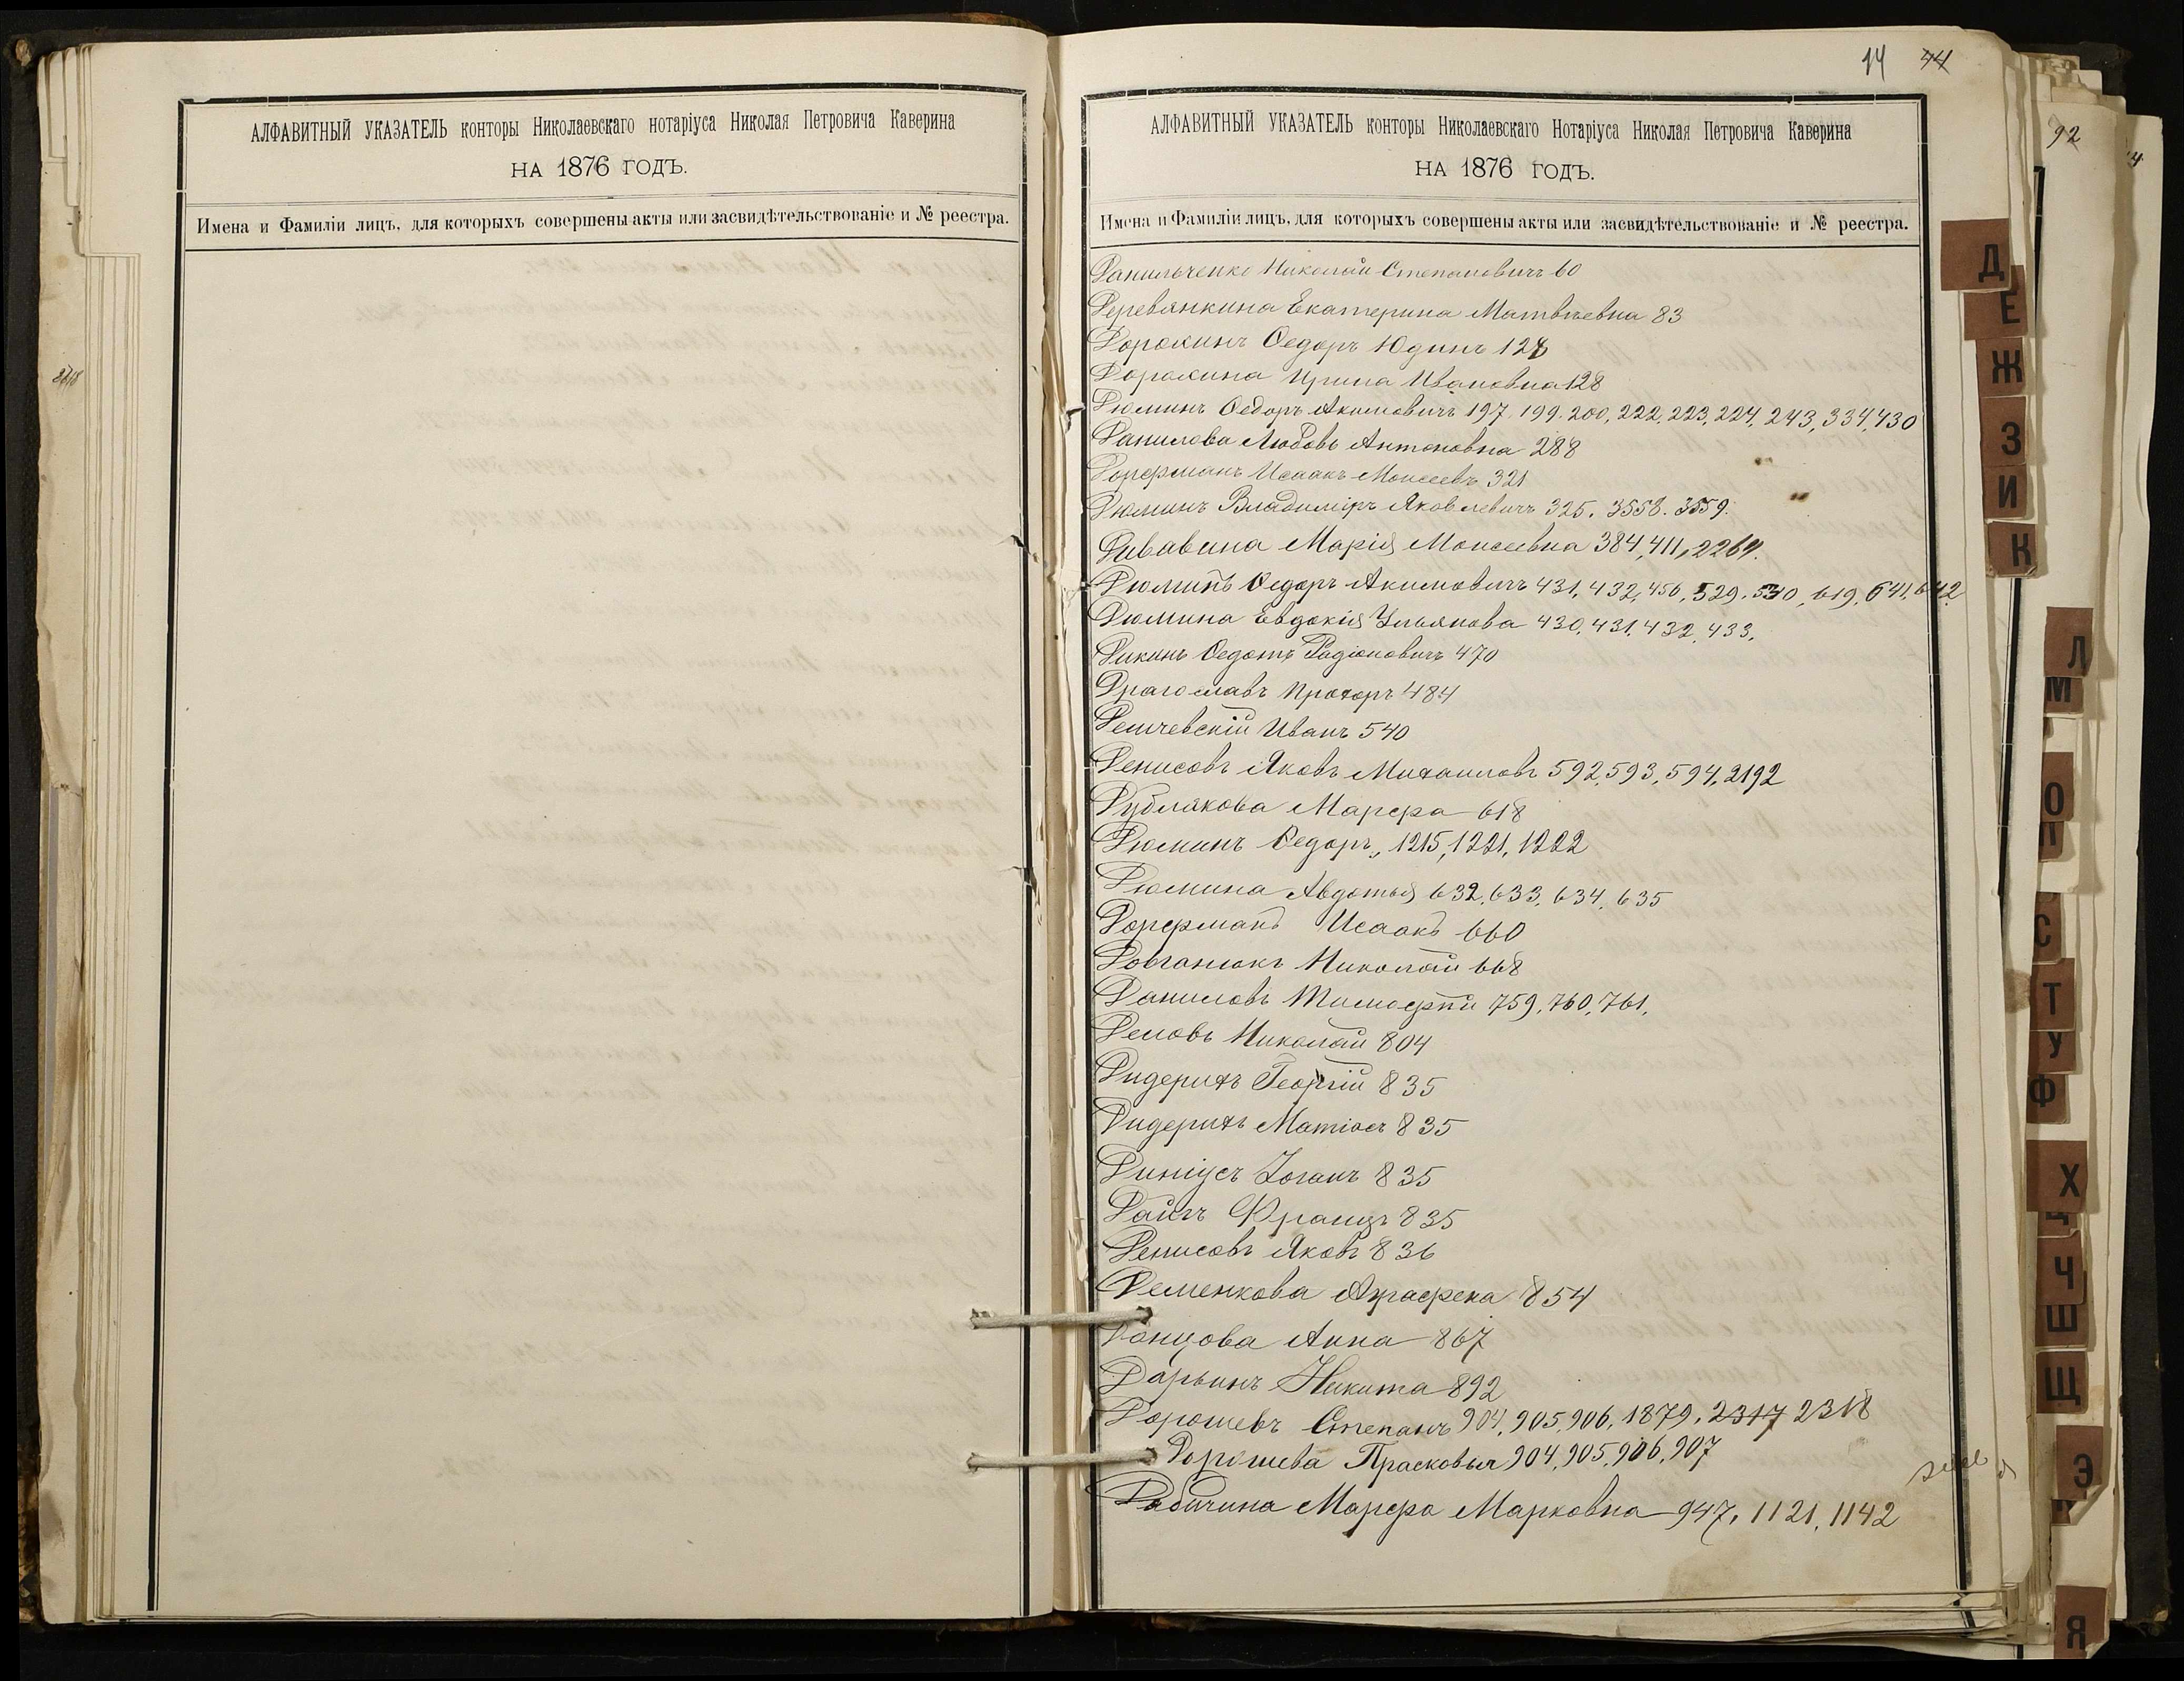 АЛФАВИТНЫЙ УКАЗАТЕЛЬ конторы Николаевскаго нотаріуса Николая Петровича Каверина
НА 1876 ГОДЪ.
Имена и Фамиліи лицъ, для которыхъ совершены акты или засвидѣтельствованіе и № реестра.
14 44
АЛФАВИТНЫЙ УКАЗАТЕЛЬ конторы Николаевскаго Нотаріуса Николая Петровича Каверина
НА 1876 ГОДЪ.
Имена и Фамиліи лицъ, для которыхъ совершены акты или засвидѣтельствованіе и № реестра.
Данильченко Николай Степановичъ 60
Деревянкина Екатерина Матвѣевна 83
Дорохинъ Ѳедоръ Юдинъ 128
Дорохина Ирина Ивановна 128
Дюминъ Ѳедоръ Акимовичъ 197. 199. 200, 222, 223, 224, 243, 334, 430
Данилова Любовь Антоновна 288
Дорфманъ Исаакъ Моисеевъ 321
Дюминъ Владиміръ Яковлевичъ 325. 3558. 3559.
Дивавина Марія Моисеевна 384, 411, 2269.
Дюминъ Ѳедоръ Акимовичъ 431, 432, 456, 529. 530, 619, 641, 642
Дюмина Евдокія Ульянова 430, 431, 432, 433.
Дикинъ Ѳедотъ Радіоновичъ 470
Драгославъ Прохоръ 484
Демчевскій Иванъ 540
Денисовъ Яковъ Михаиловъ 592, 593, 594, 2192
Дублякова Марфа 618
Дюминъ Ѳедоръ, 1215, 1221, 1222
Дюмина Авдотья 632, 633, 634, 635
Дорфманъ Исаакъ 660
Довганюкъ Николай 668
Даниловъ Тимофѣй 759, 760, 761.
Демовъ Николай 804
Дидерихъ Георгій 835
Дидерихъ Матіасъ 835
Диніусъ Іоганъ 835
Францъ 835
Денисовъ Яковъ 836
Деменкова Аграфена 854
Донцова Анна 867
Дарьинъ Никита 892
Дорошевъ Степанъ 904, 905, 906, 1879, 2317 2318
Дорошева Прасковья 904, 905, 906, 907
Дябичина Марфа Марковна 947, 1121, 1142
92
Д
Е
Ж
З
И
К
Л
М
О
П
С
Т
У
Ф
Х
Ч
Ш
Щ
Э
Я